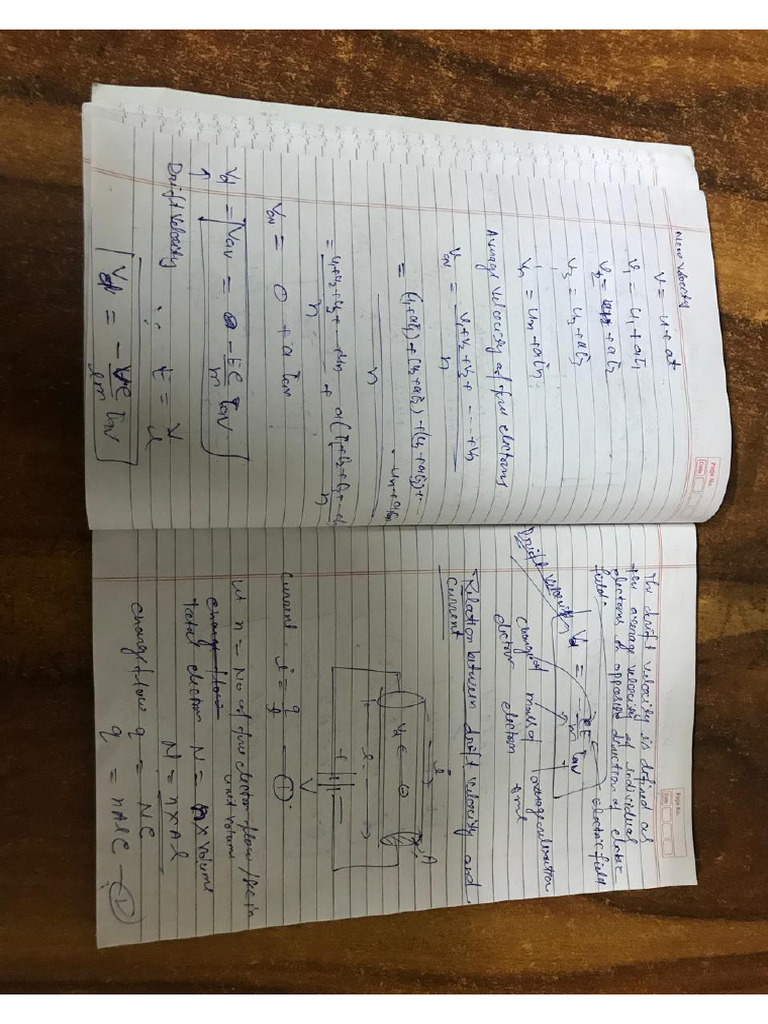 New Velocity
v = u + at
v₁ = u₁ + at₁
v₂ = u₂ + at₂
v₃ = u₃ + at₃
vₙ = uₙ + atₙ
Average velocity of free electrons
Vav = v₁+v₂+v₃+ ---- +vₙ / n
= (u₁+at₁) + (u₂+at₂) + (u₃+at₃)+ -- -
- uₙ+atₙ / n
= u₁+u₂+u₃+ - - - uₙ / n + a(t₁+t₂+t₃+ --- tₙ) / n
Vav = 0 + a tav
Vd = Vav = 0 - Ee/m tav
Drift velocity ∵ E = V/l
Vd = - Ve/lm tav
Page No.
Date
The drift velocity is defined as
the average velocity of individual
electrons in opposite direction of
field.
Drift velocity Vd = - eE/m tav electric field
mass of
electron
time
Relation between drift velocity and
current
i
A
Vd ← ⊖
← l →
+ -
V
Current i = q/t — ①
let n = No of free electron flow
unit volume
charge flow
total electron N = n × volume
N = n × A l
charge flow q = Ne
q = nAle — ②
Page No.
Date